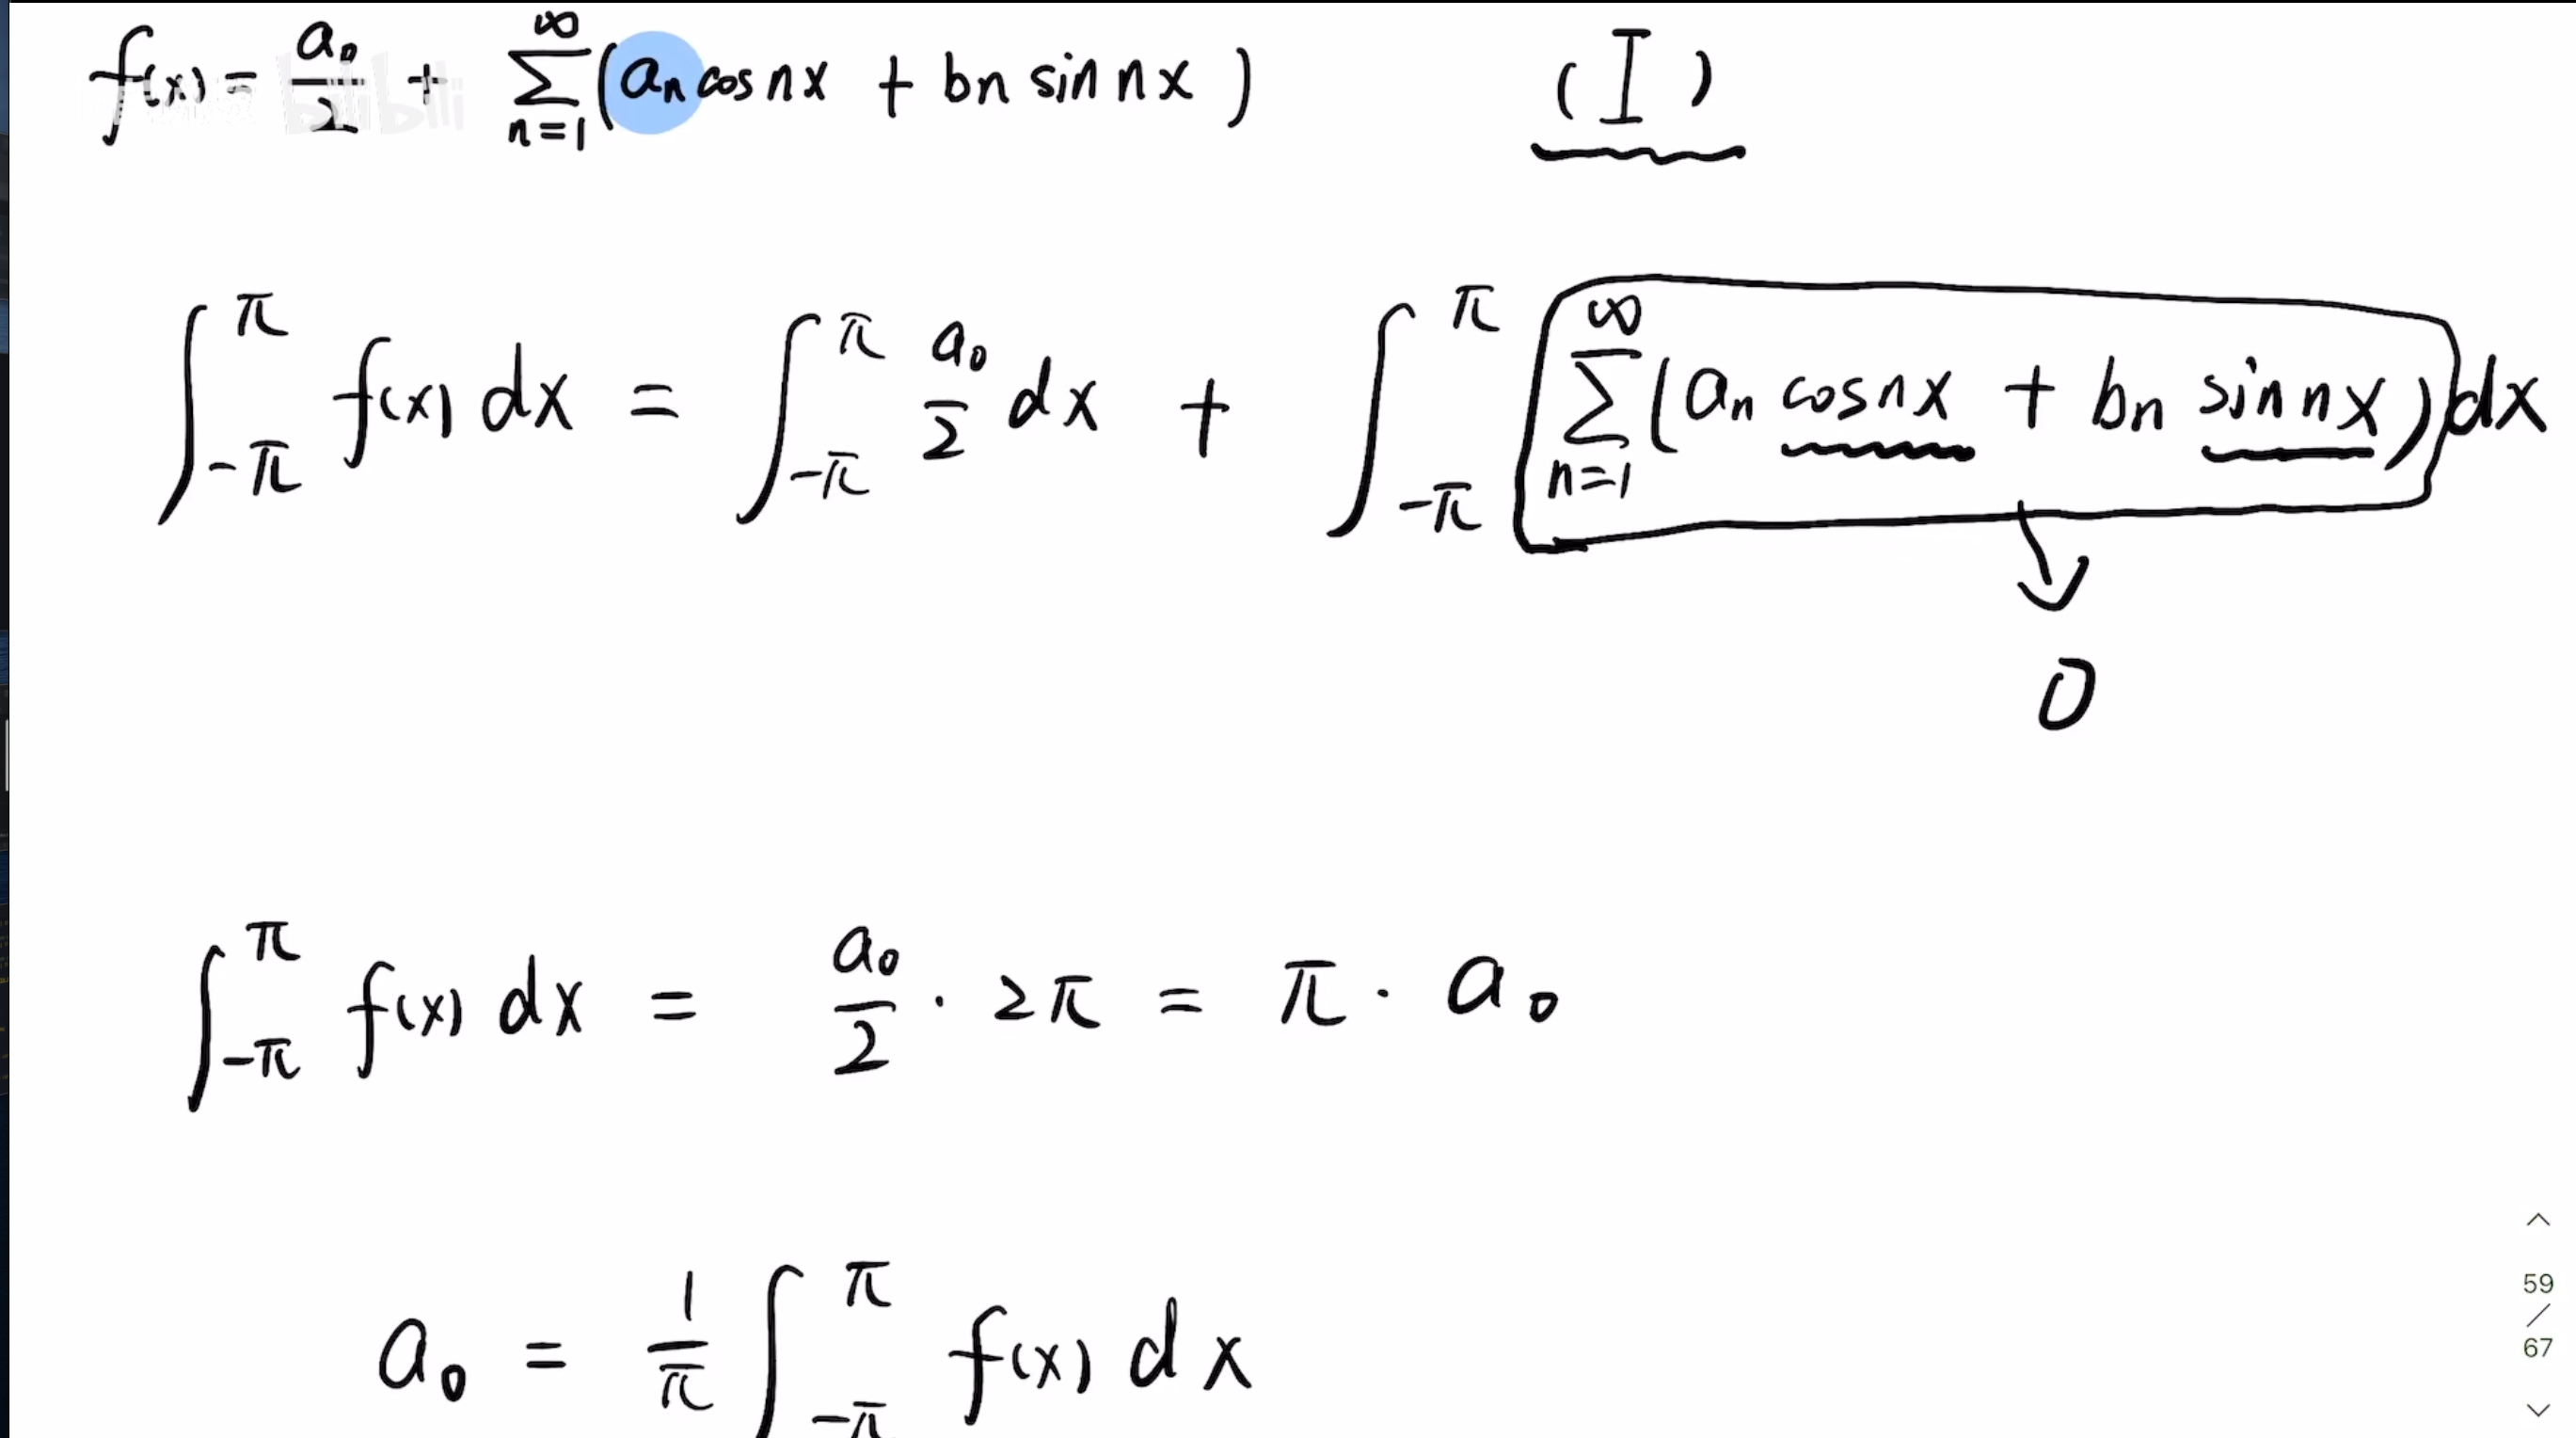 f(x) = a₀/2 + ∑_{n=1}^{∞} (aₙ cos nx + bₙ sin nx) (I)
bilibili
∫_{-π}^{π} f(x) dx = ∫_{-π}^{π} a₀/2 dx + ∫_{-π}^{π} ∑_{n=1}^{∞} (aₙ cos nx + bₙ sin nx) dx
0
∫_{-π}^{π} f(x) dx = a₀/2 · 2π = π · a₀
a₀ = 1/π ∫_{-π}^{π} f(x) dx
59
/
67